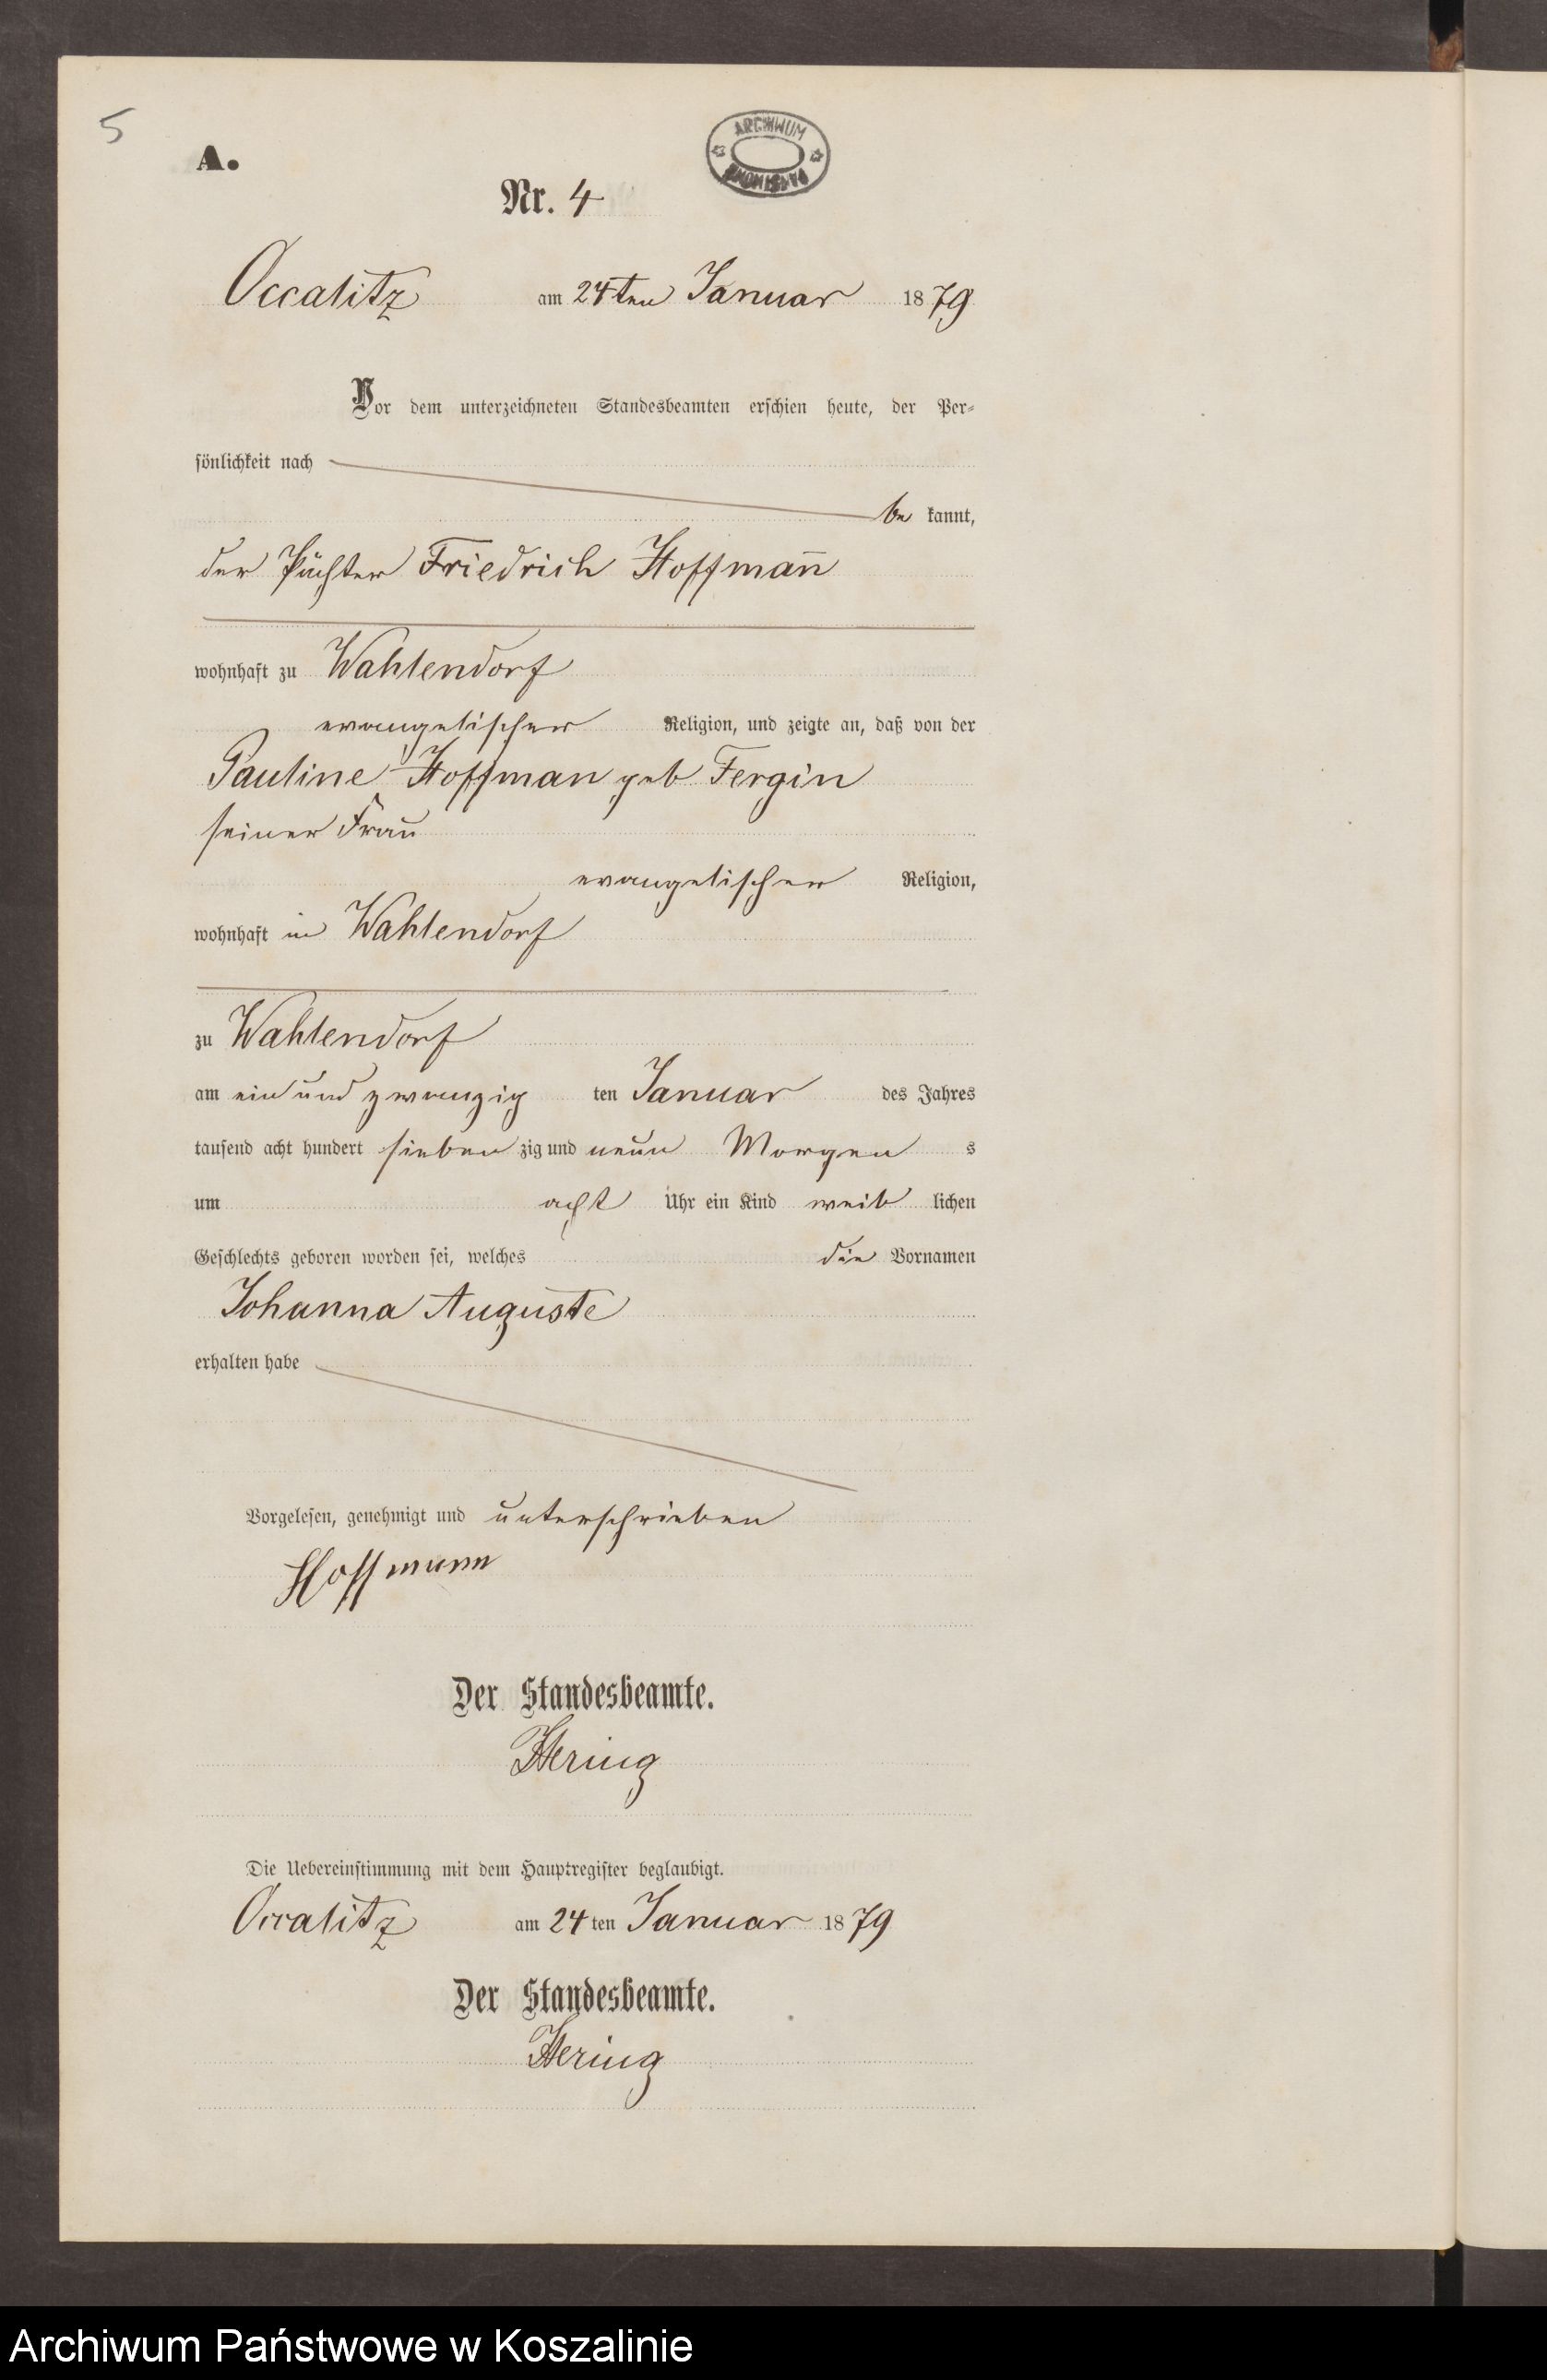 5
A.
ARCHIWUM
Nr. 4
Occalitz am 24ten Januar 1879
Vor dem unterzeichneten Standesbeamten erschien heute, der Per-
sönlichkeit nach
be kannt,
der Pächter Friedrich Hoffman̅
wohnhaft zu Wahlendorf
evangelischer Religion, und zeigte an, daß von der
Pauline Hoffman geb Fergin
seiner Frau
evangelischer Religion,
wohnhaft in Wahlendorf
zu Wahlendorf
am ein und zwanzig ten Januar des Jahres
tausend acht hundert sieben zig und neun Morgen s
um acht Uhr ein Kind weib lichen
Geschlechts geboren worden sei, welches die Vornamen
Johanna Auguste
erhalten habe
Vorgelesen, genehmigt und unterschrieben
Hoffmann
Der Standesbeamte.
Hering
Die Uebereinstimmung mit dem Hauptregister beglaubigt.
Occalitz am 24 ten Januar 1879
Der Standesbeamte.
Hering
Archiwum Państwowe w Koszalinie